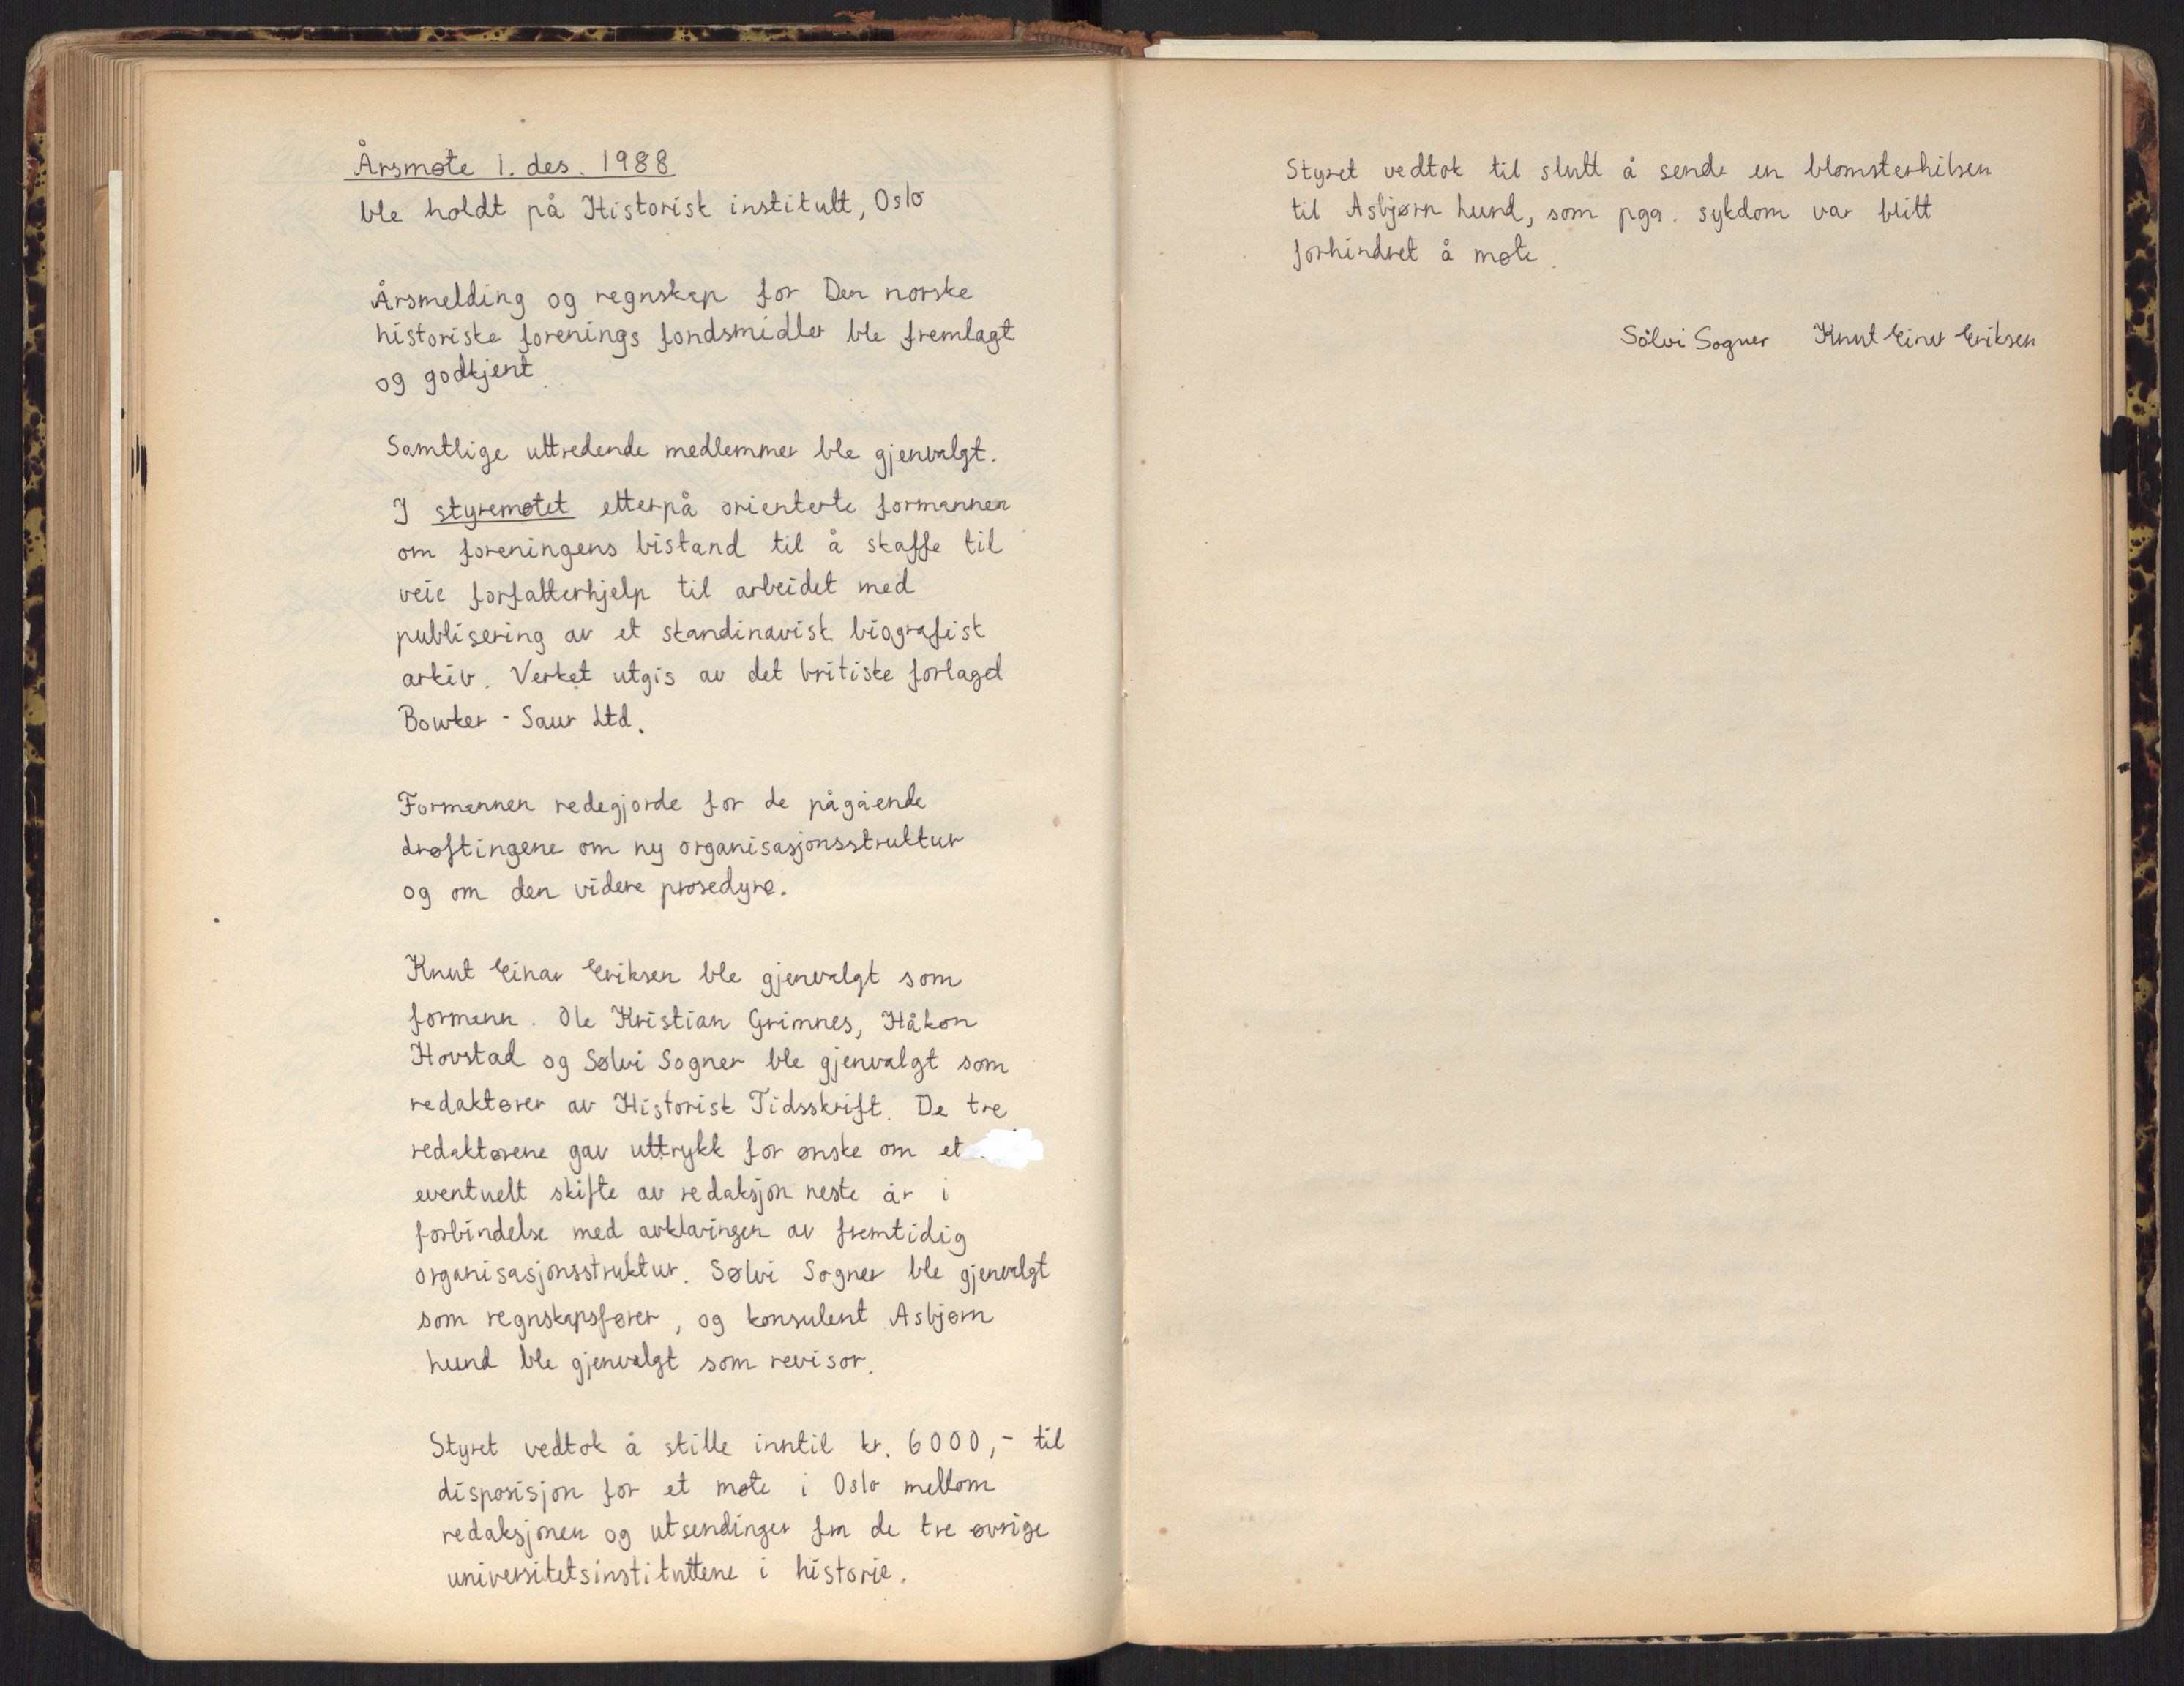 Årsmøte 1. des. 1988
ble holdt på Historisk institutt, Oslo
Årsmelding og regnskap for Den norske
historiske forenings fondsmidler ble fremlagt
og godkjent
Samtlige uttredende medlemmer ble gjenvalgt.
I styremøtet etterpå orienterte formannen
om foreningens bistand til å skaffe til
veie forfatterhjelp til arbeidet med
publisering av et skandinavisk biografisk
arkiv. Verket utgis av det britiske forlaget
Bowker - Saur Ltd.
Formannen redegjorde for de pågående
drøftingene om ny organisasjonsstruktur
og om den videre prosedyre.
Knut Einar Eriksen ble gjenvalgt som
formann. Ole Kristian Grimnes, Håkon
Hovstad og Sølvi Sogner ble gjenvalgt som
redaktører av Historisk Tidsskrift. De tre
redaktørene gav uttrykk for ønske om et
eventuelt skifte av redaksjon neste år i
forbindelse med avklaringen av fremtidig
organisasjonsstruktur. Sølvi Sogner ble gjenvalgt
som regnskapsfører, og konsulent Asbjørn
Lund ble gjenvalgt som revisor.
Styret vedtok å stille inntil kr. 6000,- til
disposisjon for et møte i Oslo mellom
redaksjonen og utsendinger fra de tre øvrige
universitetsinstituttene i historie.
Styret vedtok til slutt å sende en blomsterhilsen
til Asbjørn Lund, som pga. sykdom var blitt
forhindret å møte.
Sölvi Sogner Knut Einar Eriksen